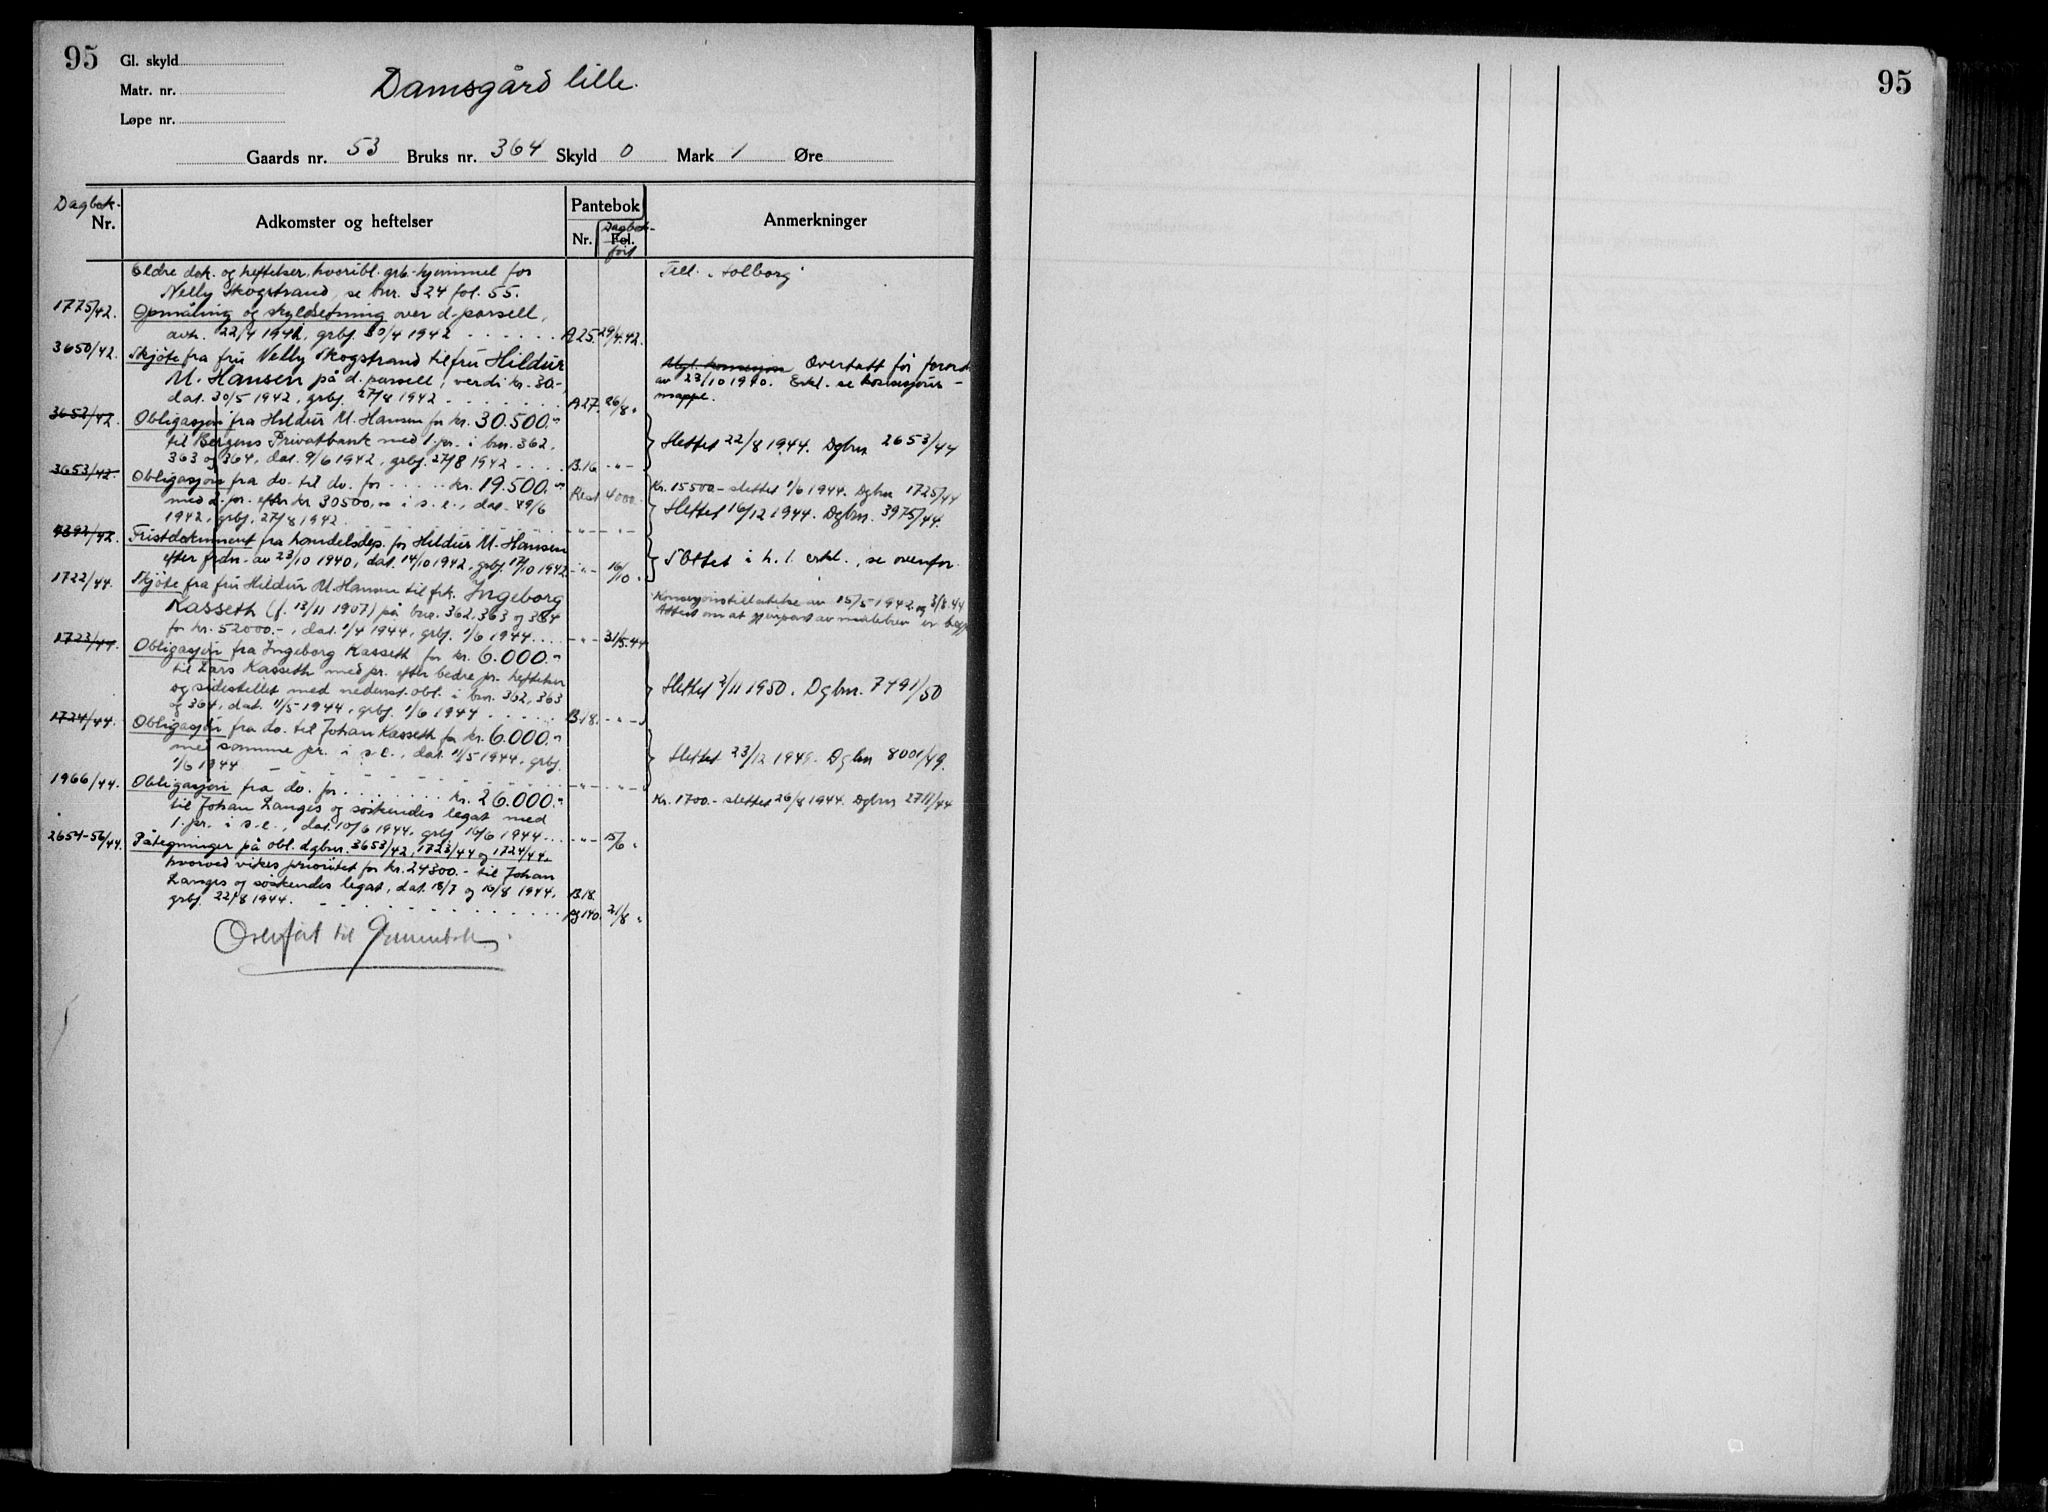 95
Gl. skyld
Matr. nr.
Løpe nr.
Damsgård lille.
Gaards nr. 53 Bruks nr. 364 Skyld 0 Mark 1 Øre
Dagbok-
Nr.
Adkomster og heftelser
Pantebok
Nr.
Fol.
Dagbok-
ført
Anmerkninger
Eldre dok. og heftelser, hvoribl. grb. hjemmel for
Nelly Skogstrand, se bnr. 324 fol. 55.
Tell. "Solborg"
1775/42. Opmåling og skyldsetning over d. parsell,
avh. 22/4 1942, grbj. 30/4 1942 A25. 29/4.42.
3650/42. Skjøte fra fru Nelly Skogstrand til fru Hildur
M. Hansen på d. parsell, verdi kr. 30.-,
dat. 30/5 1942, grbj. 27/8 1942 A27. 26/8 "
Mgl. konsesjon Overtatt før forord
av 23/10 1940. Erkl. se konsesjons-
mappe.
3652/42. Obligasjon fra Hildur M. Hansen for kr. 30.500.-
til Bergens Privatbank med 1. pr. i bnr. 362,
363 og 364, dat. 9/6 1942, grbj. 27/8 1942 B.16. -"-
Slettet 22/8 1944. Dgbnr. 2653/44
3653/42. Obligasjon fra do. til do. for kr. 19.500.-
med 2. pr. efter kr. 30500,00 i s.e., dat. 29/6
1942, grbj. 27/8 1942. -"- -"-
Rest 4000.-
Kr. 15500.- slettet 1/6 1944. Dgbnr 1725/44
Slettet 16/12 1944. Dgbnr. 3975/44.
4392/42. Fristdokument fra handelsdep. for Hildur M. Hansen
efter frdn. av 23/10 1940, dat. 14/10 1942, grbj. 17/10 1942 -"- 16/10 "
Slettet i h. t. erkl., se ovenfor.
1722/44. Skjøte fra fru Hildur M. Hansen til frk. Ingeborg
Kasseth (f. 13/11 1907) på bnr. 362, 363 og 364
for kr. 52000.-, dat. 1/4 1944, grbj. 1/6 1944 -"- 31/5.44
Konsesjonstillatelse av 15/5-1942 og 3/8.44
Attest om at gjenpart av målebrev er
1723/44. Obligasjon fra Ingeborg Kasseth for kr. 6.000.-
til Lars Kasseth med pr. efter bedre pr. heftelser
og sidestillet med nedenst. obl. i bnr. 362, 363
og 364, dat. 11/5 1944, grbj. 1/6 1944 B.18. -"-
Slettet 2/11 1950. Dgbnr. 7491/50
1724/44. Obligasjon fra do. til Johan Kasseth for kr. 6.000.-
med samme pr. i s.e., dat. 11/5 1944, grbj.
1/6 1944 -"- -"-
Slettet 23/12 1949. Dgbnr 8001/49.
1966/44. Obligasjon fra do. for kr. 26.000.-
til Johan Langes og søskendes legat med
1. pr. i s.e., dat. 10/6 1944, grbj. 16/6 1944 -"- 15/6 "
Kr. 1700.- slettet 26/8 1944. Dgbnr 2717/44
2654-56/44. Påtegninger på obl. dgbnr. 3653/42, 1723/44 og 1724/44,
hvorved vikes prioritet for kr. 24300.- til Johan
Langes og søskendes legat, dat. 18/7 og 16/8 1944,
grbj. 22/8 1944. B.18.
pg 140. 21/8 "
Overført til Grunnbok.
95